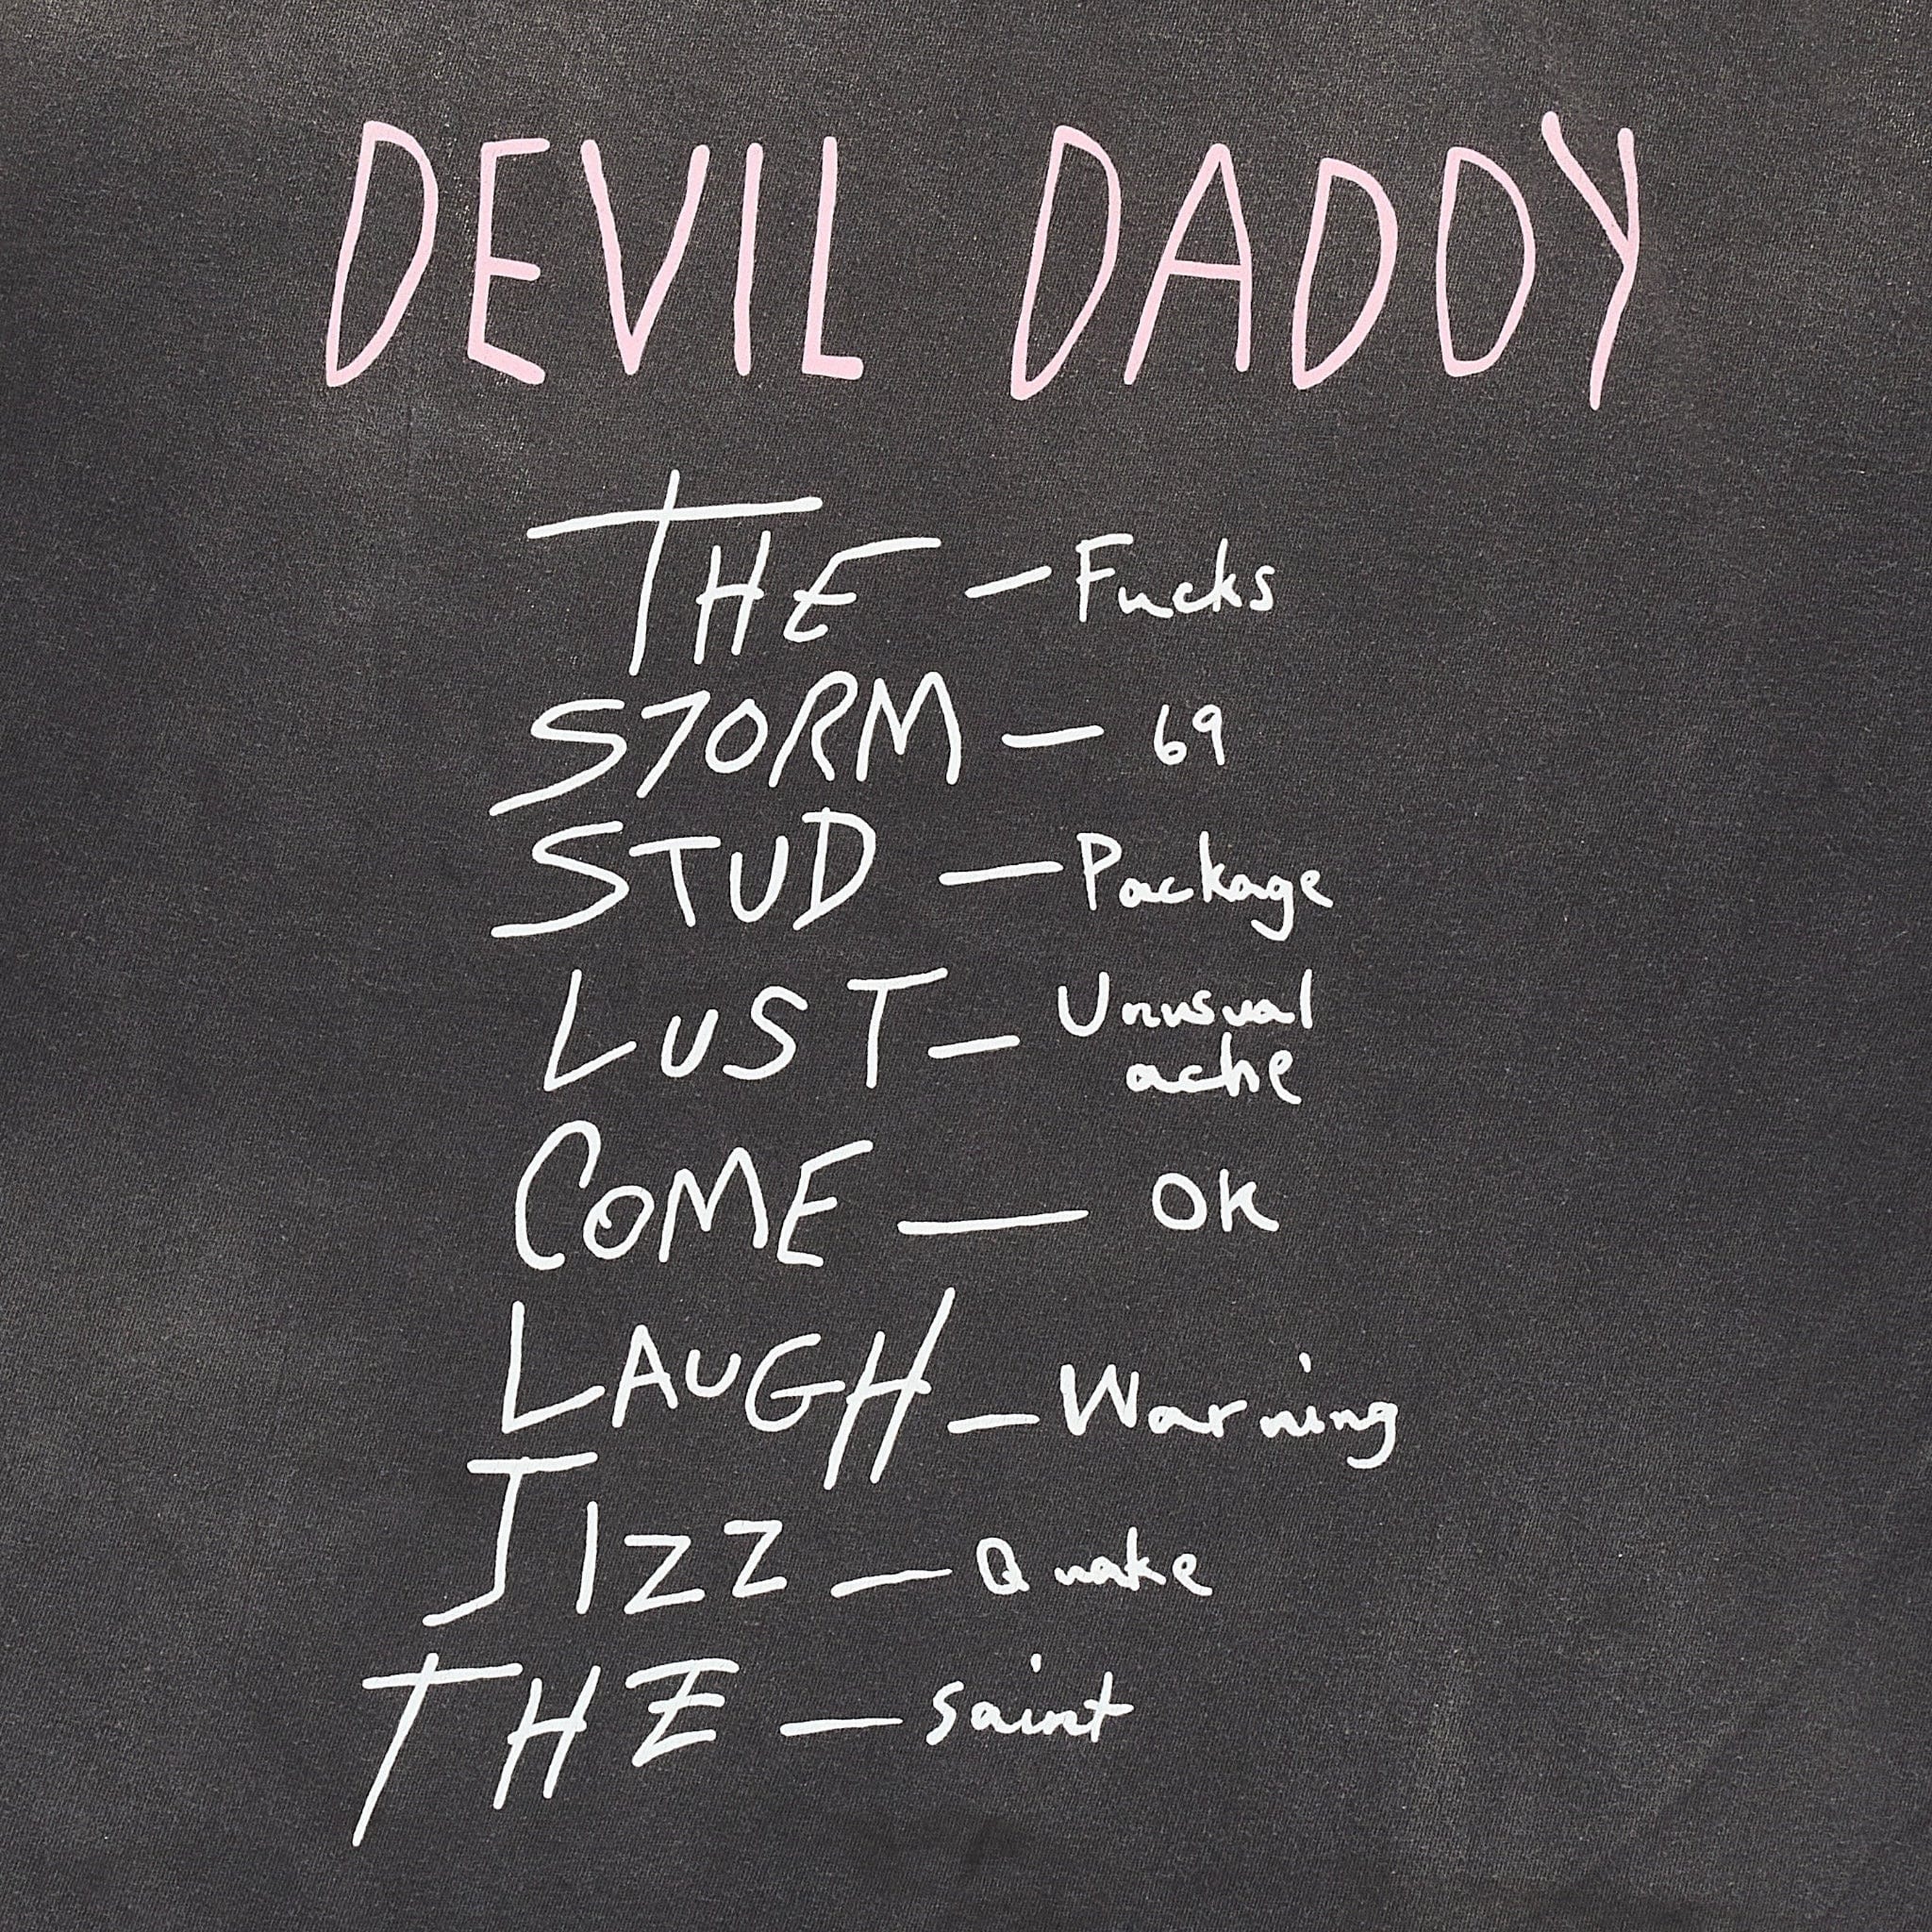 DEVIL DADDY
THE - Fucks
STORM - 69
STUD - Package
LUST - Unusual
ache
COME - OK
LAUGH - Warning
JIZZ - Quake
THE - Saint